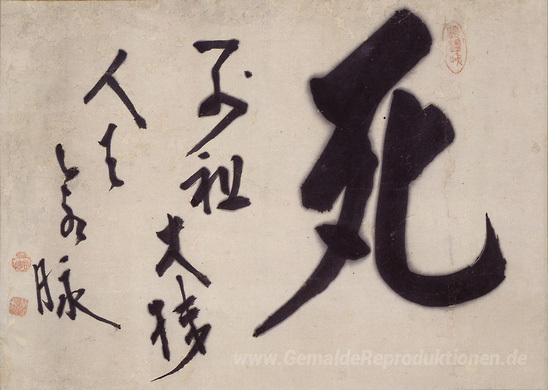 死
佛祖
大機
人天
命脈
www.GemaldeReproduktionen.de